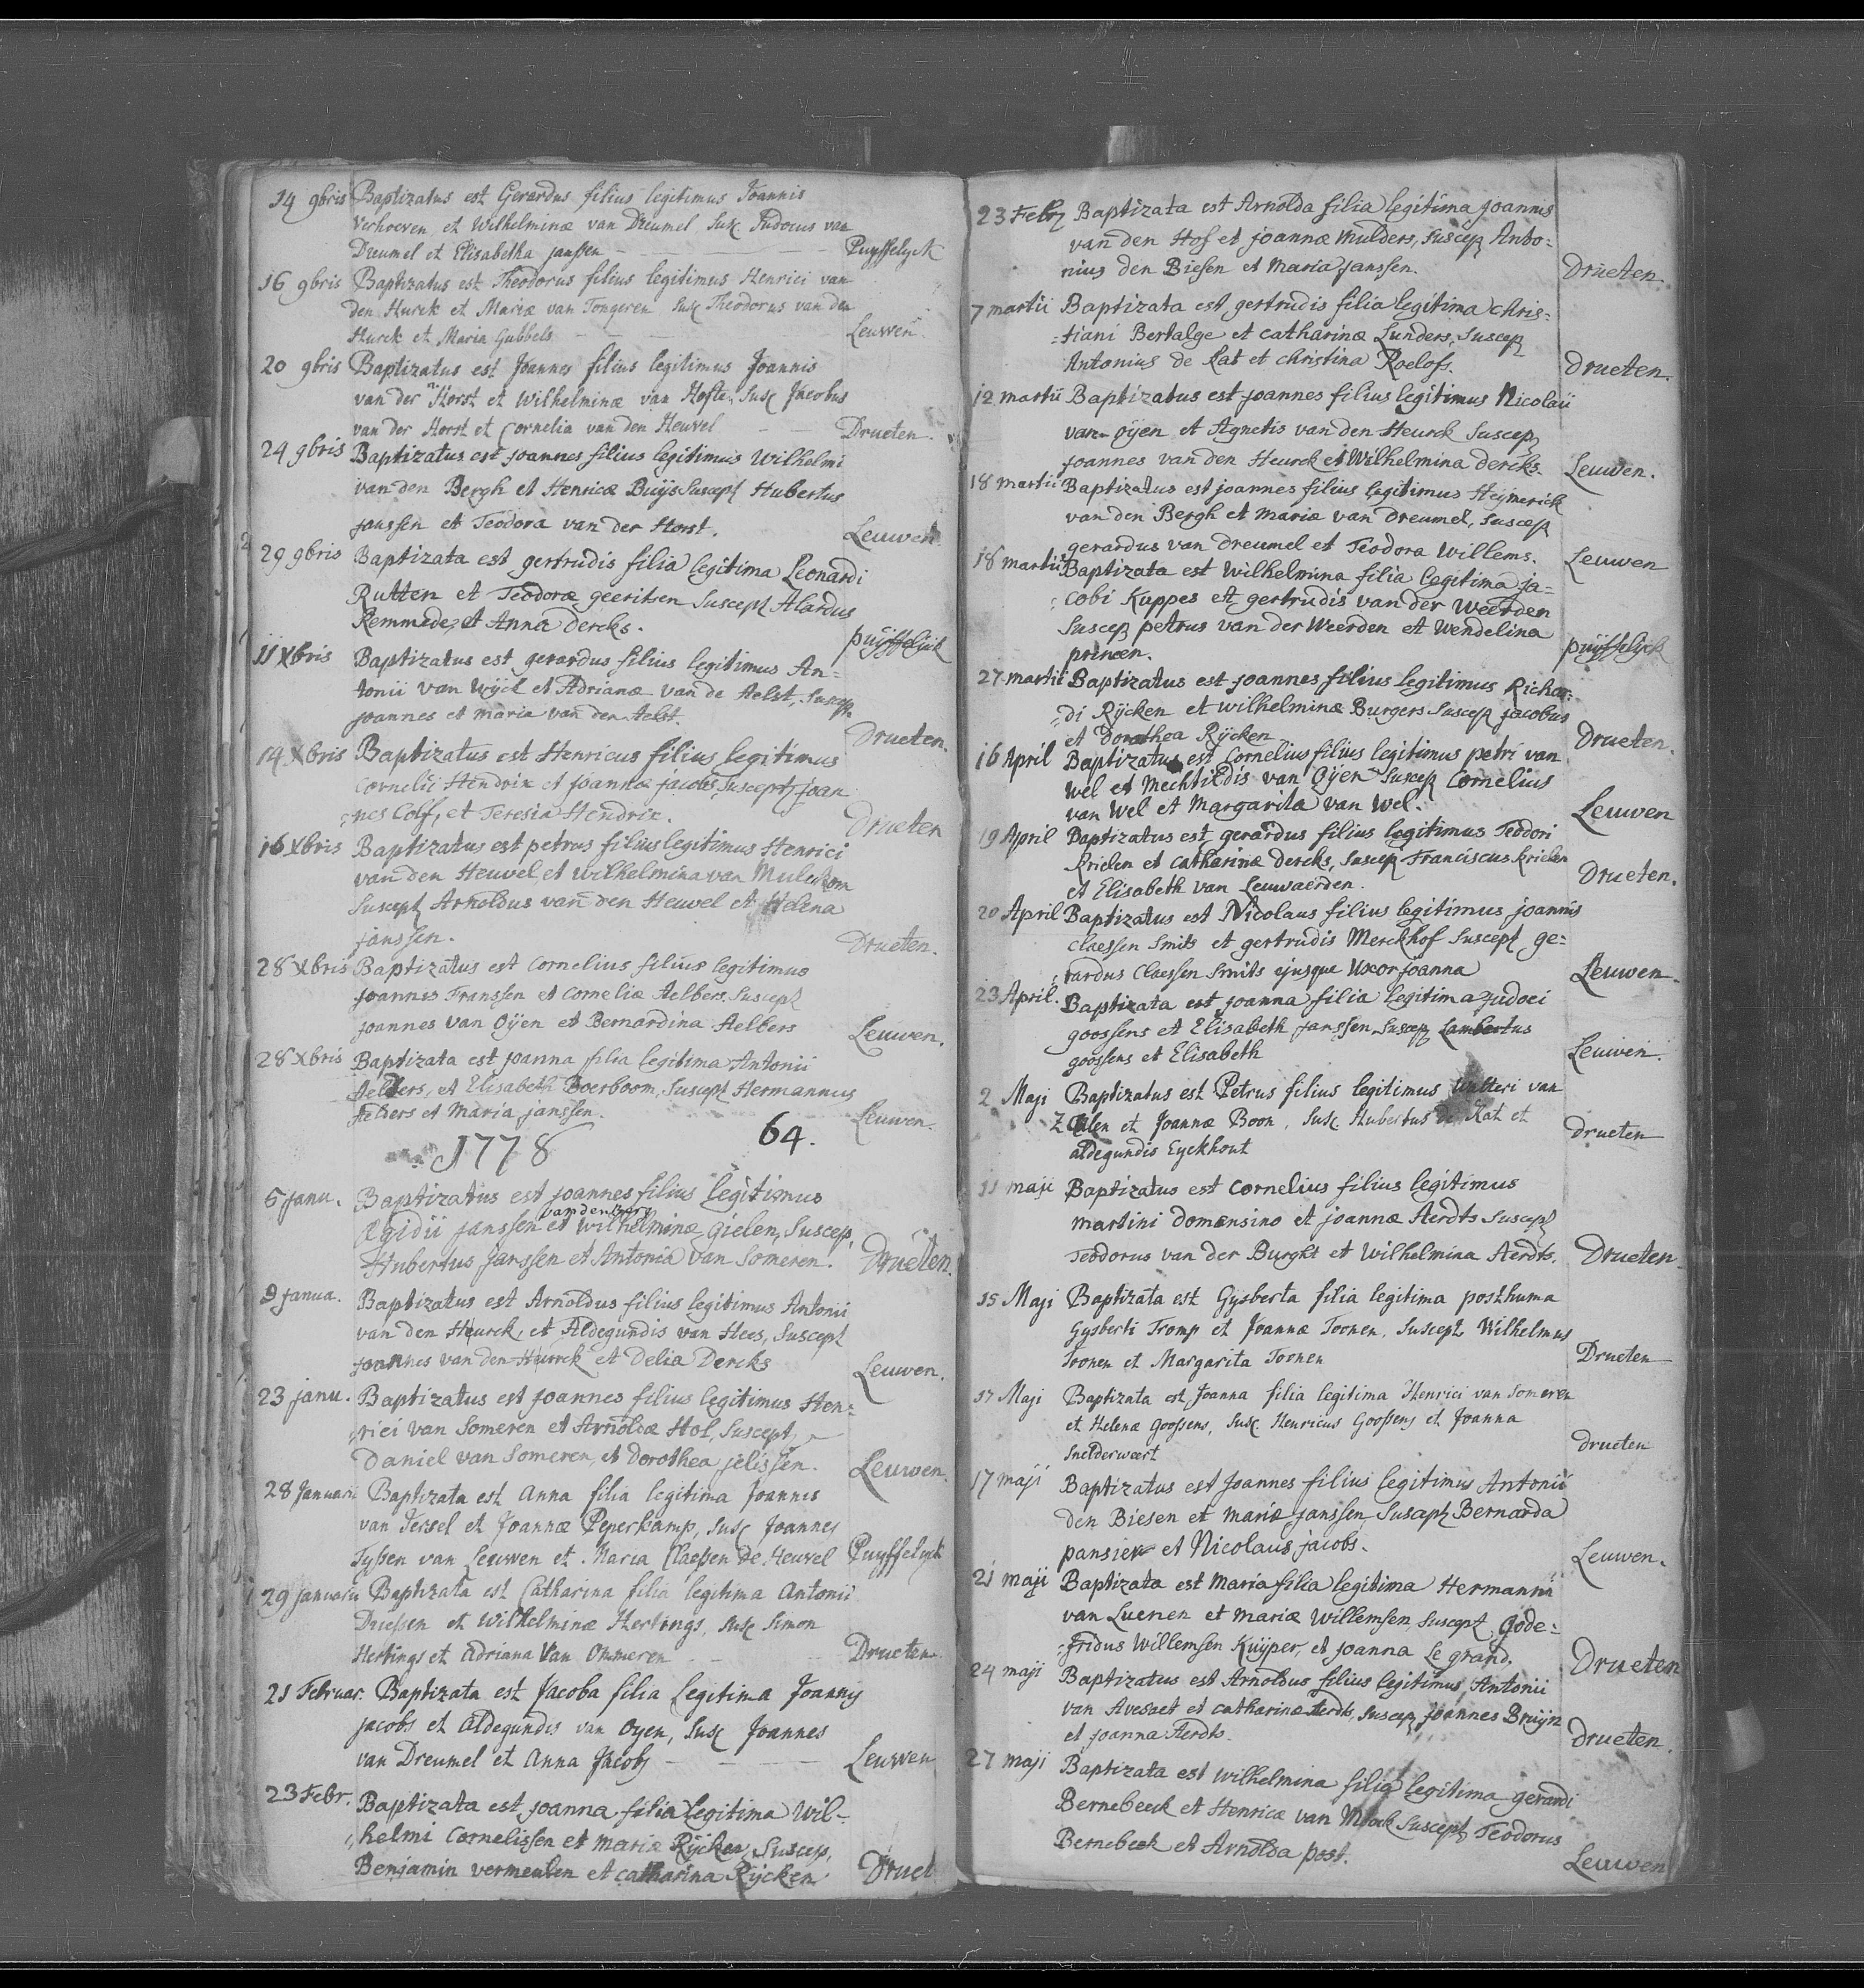 14 9bris Baptizatus est Gerardus filius legitimus Joannis
Verhoeven et Wilhelminæ van Dreumel Susc Judocus van
Dreumel et Elisabetha janssen Puyffelyck
16 9bris Baptizatus est Theodorus filius legitimus Henrici van
den Hurck et Mariæ van Tongeren Susc Theodorus van den
Hurck et Maria Gubbels Leuwen
20 9bris Baptizatus est Joannes filius legitimus Joannis
van der Horst et Wilhelminæ van Hofte, Susc Jacobus
van der Horst et Cornelia van den Heuvel Drueten.
24 9bris Baptizatus est joannes filius legitimus Wilhelmi
van den Bergh et Henricæ Buijs Suscept Hubertus
janssen et Teodora van der Horst. Leuwen
29 9bris Baptizata est gertrudis filia legitima Leonardi
Rutten et Teodoræ geeritsen Suscept Alardus
Remmede, et Anna dercks. puijffelijck
11 Xbris Baptizatus est gerardus filius legitimus An=
tonii van Wijck et Adrianæ van de Aelst, Suscep
joannes et maria van den Aelst. Drueten.
14 Xbris Baptizatus est Henricus filius legitimus
Cornelii Hendrix et joannæ jacobs, Suscept joan
=nes Colf, et Teresia Hendrix. Drueten
16 Xbris Baptizatus est petrus filius legitimus Henrici
van den Heuvel et wilhelmina van Mulekom
Suscept Arnoldus van den Heuvel et Helena
janssen. Drueten.
28 Xbris Baptizatus est Cornelius filius legitimus
joannes Franssen et Corneliæ Aelbers, Suscept
joannes van Oijen et Bernardina Aelbers Leuwen.
28 Xbris Baptizata est joanna filia legitima Antonii
Aelbers, et Elisabeth Boerboom, Suscept Hermannus
Aelbers et Maria janssen. Leuwen.
1778 64.
6 janu. Baptizatus est joannes filius legitimus
van den Berg
Ægidii janssen et Wilhelminæ Gielen, Suscep,
Hubertus Janssen et Antonia van Someren. Drueten.
9 janua. Baptizatus est Arnoldus filius legitimus Antonii
van den Heurck, et Aldegundis van Hees, Suscept
joannes van den Heurck et Delia Dercks Leuwen.
23 janu. Baptizatus est joannes filius legitimus Hen=
rici van Someren et Arnoldæ Hol, Suscept
Daniel van Someren, et Dorothea jelissen. Leuwen.
28 Januarii Baptizata est Anna filia legitima Joannis
van Tersel et Joannæ Peperkamp, Susc Joannes
Tyssen van Leuwen et Maria Claessen de Heuvel Puyffelyck
29 januarii Baptizata est Catharina filia legitima Antonii
Driessen et Wilhelminæ Hertings, Susc Simon
Hertings et Adriana Van Ommeren Drueten.
21 Februar. Baptizata est Jacoba filia Legitima Joannis
jacobs et Aldegundis van Oyen, Susc Joannes
van Dreumel et Anna Jacobs Leuwen
23 Febr. Baptizata est joanna filia Legitima Wil=
helmi Cornelissen et mariæ Rijcken, Suscep,
Benjamin vermeulen et catharina Rijcken Druet
23 Febr Baptizata est Arnolda filia legitima joannis
van den Hof et joannæ Mulders, Suscep Anto=
nius den Biesen et Maria janssen. Drueten
7 martii Baptizata est gertrudis filia legitima Chris=
=tiani Bertalge et catharinæ Lunders, Suscep
Antonius de Kat et christina Roelofs. Drueten.
12 martii Baptizatus est joannes filius legitimus Nicolaii
van Oijen et Agnetis van den Heurck Suscep
joannes van den Heurck et Wilhelmina dercks Leuwen.
18 martii Baptizatus est joannes filius legitimus Heijmerick
van den Bergh et Mariæ van Dreumel, Suscep
gerardus van dreumel et Teodora Willems. Leuwen
18 martii Baptizata est Wilhelmina filia legitima ja=
cobi Kuppes et gertrudis van der Weerden
Suscep petrus van der Weerden et Wendelina
princen. puijffelijck
27 martii Baptizatus est joannes filius legitimus Richar=
=di Rijcken et wilhelminæ Burgers Suscep jacobus
et dorothea Rijcken Drueten.
16 April Baptizatus est Cornelius filius legitimus petri van
Wel et Mechtildis van Oijen Suscep Cornelius
van Wel et Margarita van Wel. Leuwen
19 April Baptizatus est gerardus filius legitimus Teodori
Krielen et catharinæ dercks, Suscep Franciscus Krielen
et Elisabeth van Leuwaerden. Drueten.
20 April Baptizatus est Nicolaus filius legitimus joannis
Claessen Smits et gertrudis Merckhof Suscept ge=
rardus Claessen Smits ejusque Uxor joanna Leuwen
23 April. Baptizata est joanna filia legitima judoci
goossens et Elisabeth janssen Suscep Lambertus
goossens et Elisabeth Leuwen.
2 Maji Baptizatus est Petrus filius legitimus Walteri van
Zalen et Joannæ Boon, Susc. Hubertus de Kat et
Aldegundis Eyckhout Drueten
11 maji Baptizatus est Cornelius filius legitimus
martini domensino et joannæ Aerdts Suscept
Teodorus van der Burght et Wilhelmina Aerdts. Drueten
15 Maji Baptizata est Gysberta filia legitima posthuma
Gysberti Tromp et Joannæ Toonen, Suscept Wilhelmus
Toonen et Margarita Toonen Drueten
17 Maji Baptizata est Joanna filia legitima Henrici van Someren
et Helenæ Goossens, Susc. Henricus Goossens et Joanna
Snelderwaert Drueten
17 maji Baptizatus est Joannes filius legitimus Antonii
den Biesen et mariæ janssen, Suscept Bernarda
pansier et Nicolaus jacobs. Leuwen.
21 maji Baptizata est Maria filia legitima Hermanni
van Luenen et mariæ Willemsen, Suscept Gode=
=fridus Willemsen Kuijper, et joanna Le grand. Drueten
24 maji Baptizatus est Arnoldus filius legitimus Antonii
van Avesaet et catharinæ Aerdts, Suscep joannes Bruijn
et joanna Aerdts. Drueten.
27 maji Baptizata est wilhelmina filia legitima gerardi
Bernebeeck et Henricæ van Suscept Teodorus
Bernebeek et Arnolda post. Leuwen